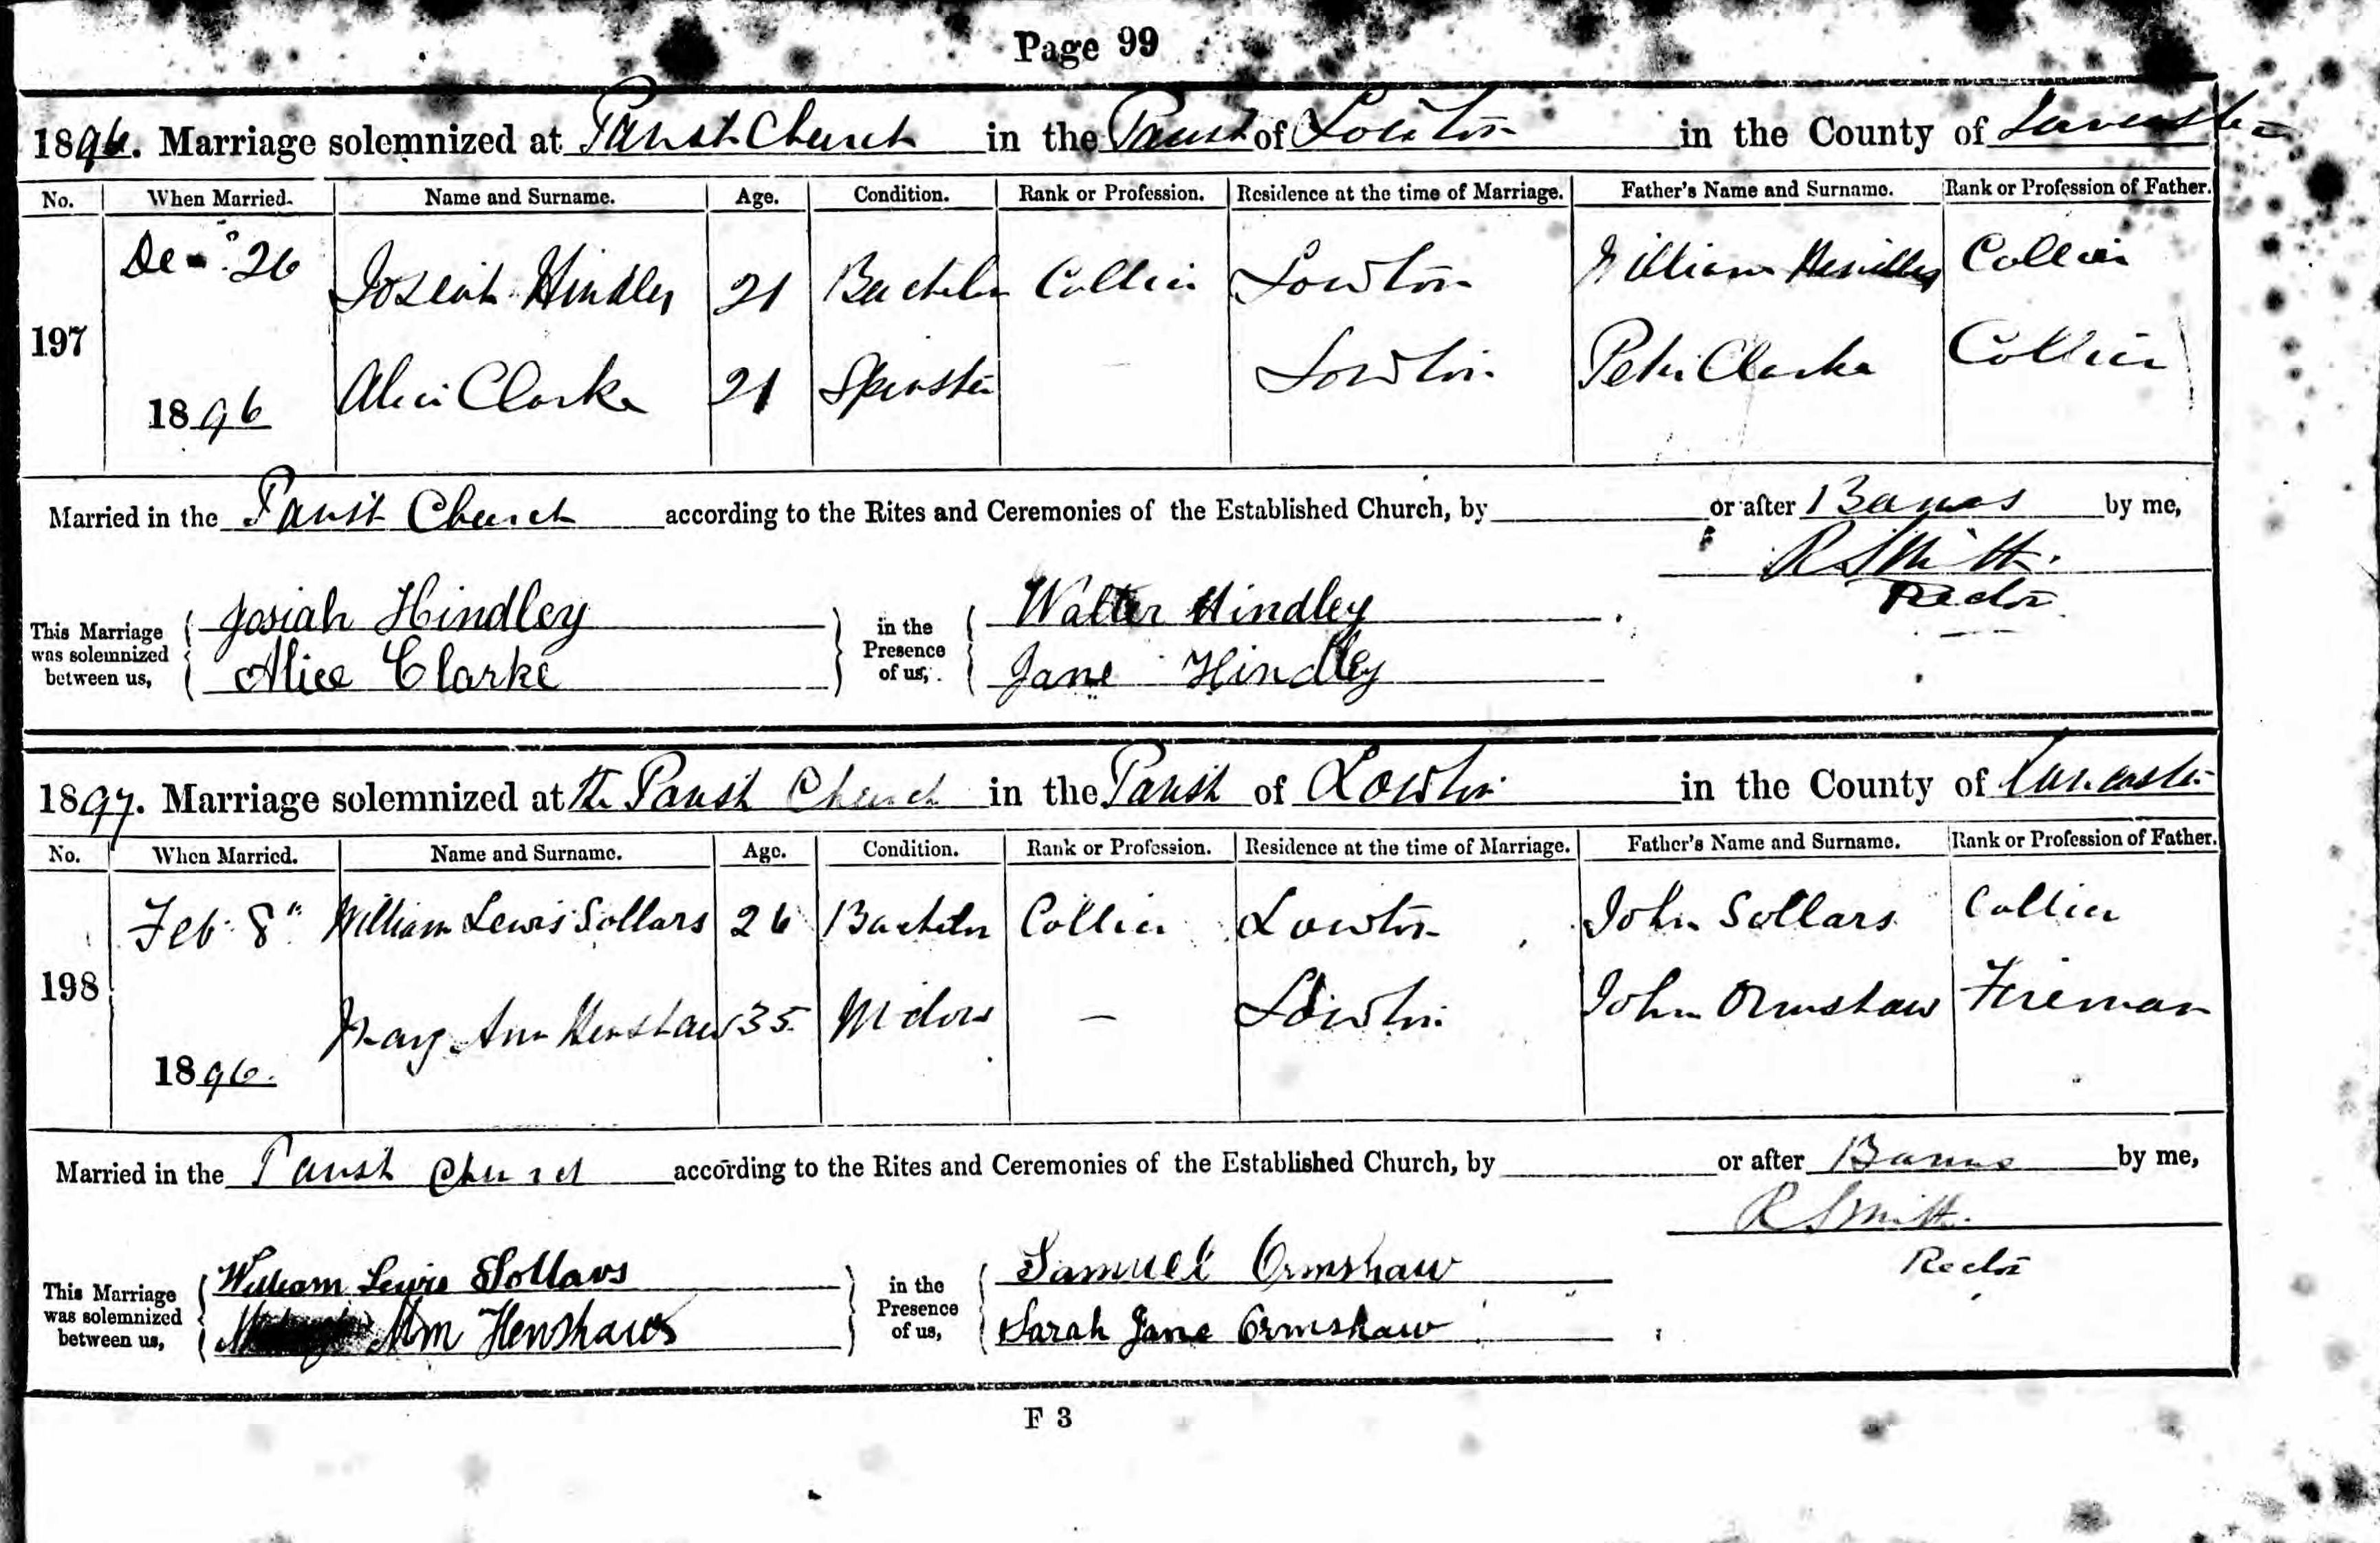 Page 99
1896. Marriage solemnized at Parish Church in the Parish of Lowton in the County of Lancaster
No. When Married. Name and Surname. Age. Condition. Rank or Profession. Residence at the time of Marriage. Father's Name and Surname. Rank or Profession of Father.
197 26 Hindley 21 Bachelor Collier Lowton William Collier
1896 Alice Clarke 21 Spinster Lowton Peter Clarke Collier
Married in the Parish Church according to the Rites and Ceremonies of the Established Church, by or after Banns by me,
R Smith.
Rector
This Marriage was solemnized between us, Josiah Hindley in the Presence of us, Walter Hindley
Alice Clarke Jane Hindley
1897. Marriage solemnized at the Parish Church in the Parish of Lowton in the County of Lancaster
No. When Married. Name and Surname. Age. Condition. Rank or Profession. Residence at the time of Marriage. Father's Name and Surname. Rank or Profession of Father.
198 Feb 8th William Lewis Sollars 26 Bachelor Collier Lowton John Sollars Collier
1896. Mary Ann Henshaw 35 Widow — Lowton John Ormshaw Fireman
Married in the Parish Church according to the Rites and Ceremonies of the Established Church, by or after Banns by me,
R Smith.
Rector
This Marriage was solemnized between us, William Lewis Sollars in the Presence of us, Samuel Ormshaw
Henshaw Sarah Jane Ormshaw
F 3